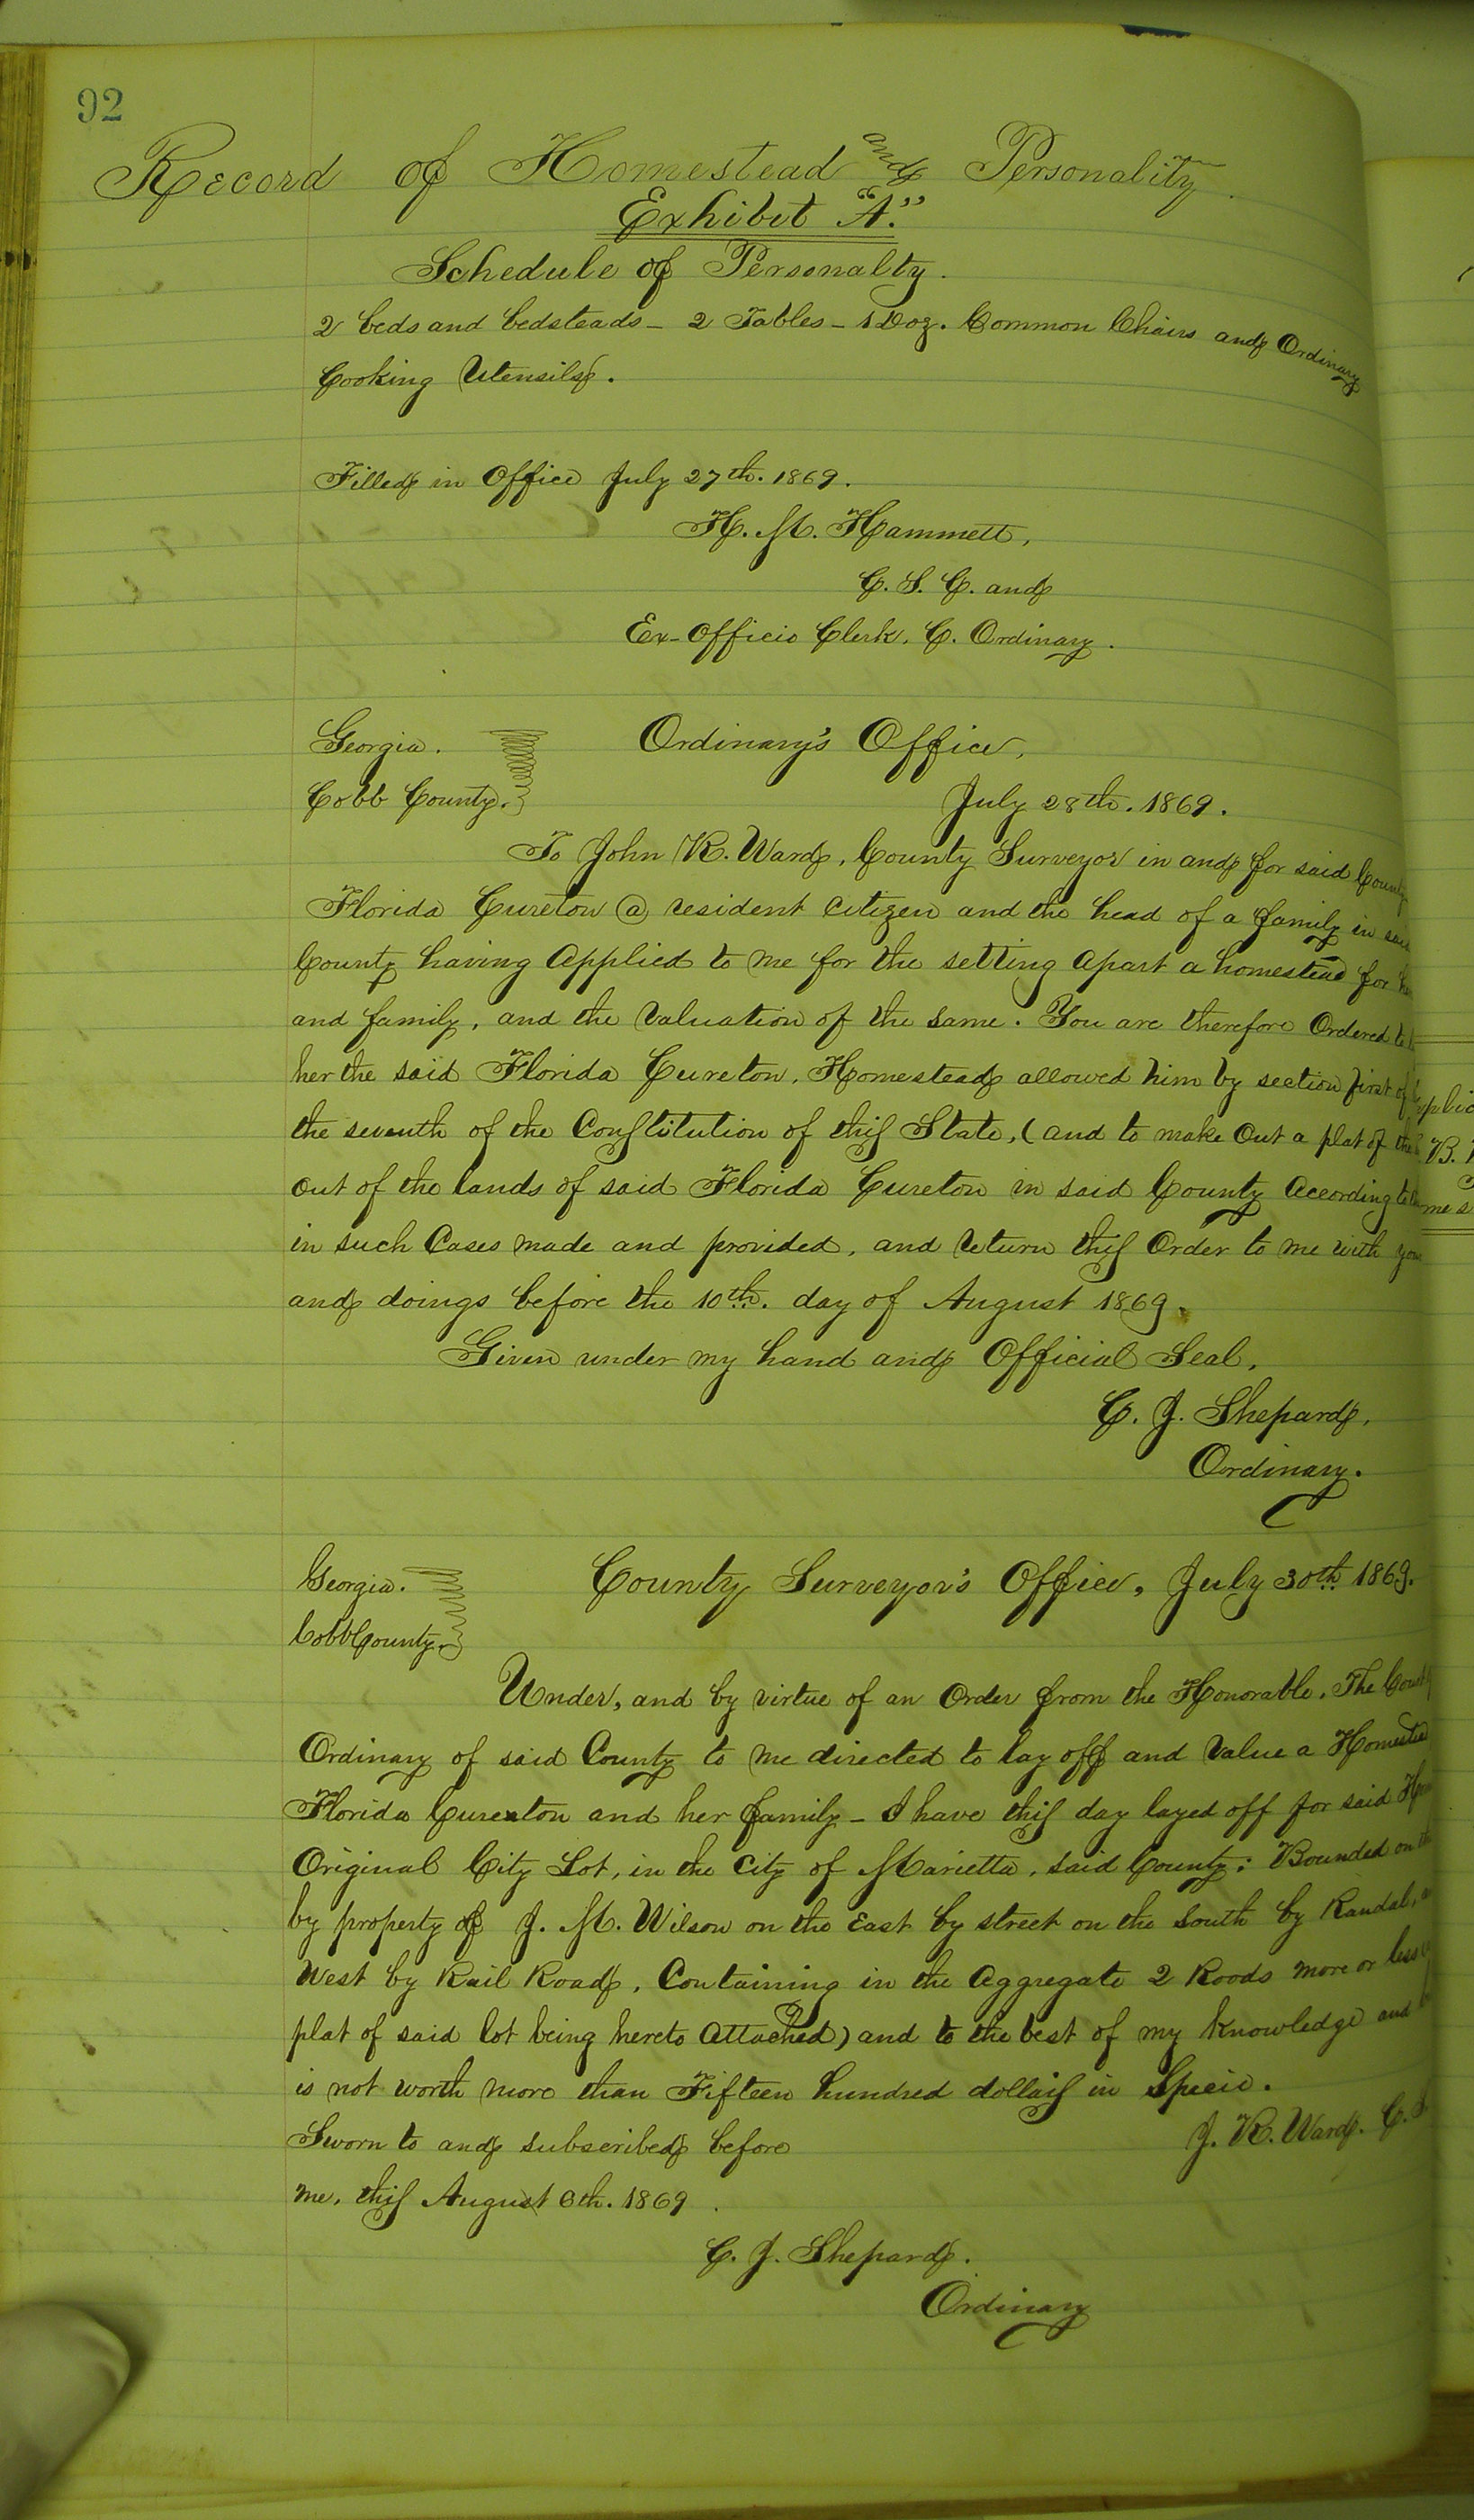 92
Record of Homestead and Personality
Exhibit "A."
Schedule of Personalty.
2 beds and bedsteads - 2 Tables - 1 Doz. Common Chairs and Ordinary
Cooking Utensils.
Filled in Office July 27th. 1869.
H. M. Hammett,
C. S. C. and
Ex-Officio Clerk, C. Ordinary.
Georgia. Ordinary's Office,
Cobb County. July 28th. 1869.
To John R. Ward, County Surveyor in and for said County
Florida Cureton @ resident citizen and the head of a family in said
County having Applied to me for the setting Apart a homestead for
and family, and the Valuation of the same. You are therefore Ordered to
her the said Florida Cureton, Homestead allowed him by section first of
the seventh of the Constitution of this State, (and to make Out a plat of the
Out of the lands of said Florida Cureton in said County According to
in such Cases made and provided, and return this Order to me with
and doings before the 10th. day of August 1869.
Given under my hand and Official Seal.
C. J. Shepard,
Ordinary.
Georgia. County Surveyor's Office, July 30th 1869.
Cobb County.
Under, and by virtue of an Order from the Honorable, The County
Ordinary of said County to me directed to lay off and Value a Homestead
Florida Cureton and her family - I have this day layed off for said
Original City Lot, in the City of Marietta, said County: Bounded on the
by property of J. M. Wilson on the East by street on the South by Randal,
West by Rail Road, Containing in the Aggregate 2 Roods more or less
plat of said lot being hereto Attached) and to the best of my Knowledge and
is not worth more than Fifteen hundred dollars in Specie.
Sworn to and subscribed before J. R. Ward. C.
me, this August 6th. 1869
C. J. Shepard.
Ordinary